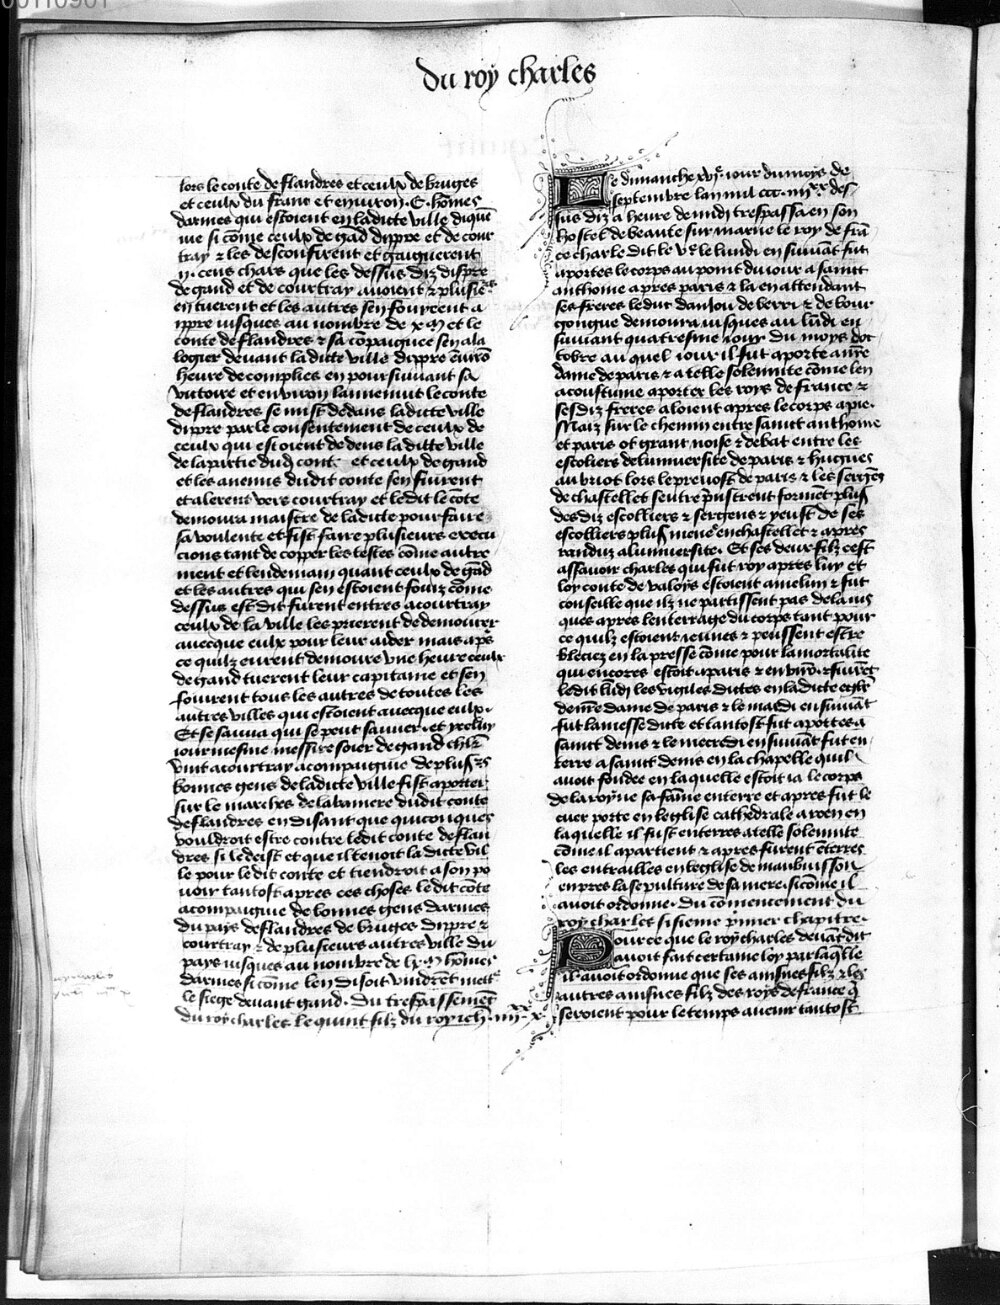 00110901
du roy charles
lors le conte de flandres et ceulx de bruges
et ceulx du franc et environ .C. hōmes
darmes qui estoient en ladicte ville dique
me si cōme ceulx de gād dippre et de cour
tray et les desconfirent et gaignerent
ii. cens chars que les dessus diz dippre
de gand et de courtray avoient et plusieʳˢ
en tuerent et les autres sen fouyrent a
ippre iusques au nombre de x. m et le
conte de flandres et sa cōpaignee sen ala
logier devant ladicte ville dippre envirō
heure de complies en poursuivant sa
victoire et environ lanuenuit le conte
de flandres se mist dedans ladicte ville
dippre par le consentement de ceulx de
ceulx qui estoient dedens ladicte ville
de la partie dudᵗ conte et ceulx de gand
et les anemis dudit conte sen fuirent
et alerent vers courtray et ledit cōte
demoura maistre de ladicte pour faire
sa voulente et fist faire plusieurs execu
cions tant de copper les testes cōme autre
ment et lendemain quant ceulx de gād
et les autres qui sen estoient fouiz cōme
dessus est dit furent entres a courtray
ceulx de la ville les prierent de demourer
avecque eulx pour leur aider mais apˢ
ce quilz eurent demoure une heure ceulx
de gand tuerent leur capitaine et sen
fouirent tous les autres de toutes les
autres villes qui estoient avecque eulx.
Et se sauva qui se peut sauver. et ycelui
iour mesme messire soier de gand chlr̄
vint a courtray acompaignie de plusʳˢ
bonnes gens de ladicte ville fist aporter
sur le marches de la baniere dudit conte
de flandres en disant que quiconques
vouldroit estre contre ledit conte de flan
dres si le deist et que il tenoit ladicte vil
le pour ledit conte et tiendroit a son po
voir tantost apres ces choses ledit cōte
acompaignie de bonnes gens darmes
du pays de flandres de bruges dippre et
courtray et de plusieurs autres ville du
pays iusques au nombre de lx. m hōmes
darmes si cōme len disoit vindrēt mettʳ
le siege devant gand. du trespassemēt
du roy charles le quint filz du roy ieh̄.
Le dimanche xvi.ᵉ iour du moys de
septembre lan mil ccc. iiii.ˣˣ des
sus diz a heure de midi trespassa en son
hostel de beaute sur marne le roy de frā
ce charle dit le v.ᵉ le lundi ensuivāt fut
aportes le corps au point du iour a saint
anthoine apres paris et la en attendant
ses freres le duc daniou de berri et de bour
gongne demoura iusques au lūdi en
suivant quatresme iour du moys doc
tobre au quel iour il fut aporte a nr̄e
dame de paris et a telle solennite cōme len
acoustume aporter les roys de france et
ses diz freres aloient apres le corps a pie.
Maiz sur le chemin entre saint anthoine
et paris ot grant noise et debat entre les
escoliers de luniversite de paris et hugues
aubriot lors le prevost de paris et les sergēs
de chastellet
des diz escolliers et sergens
escolliers plusʳˢ menes en chastellet et apres
randuz a luniversite. Et ses deux filz cest
assavoir charles qui fut roy apres luy et
loy conte de valoys estoient a melun et fut
conseille que ilz ne partissent pas de la ius
ques apres lenterrage du corps tant pour
ce quilz estoient ieunes et peussent estre
bleciez en la presse cōme pour la mortalite
qui encores estoit a paris et environ et furēt
ledit lūdi les vigiles dictes en ladicte egl̄e
de nr̄e dame de paris et le mardi ensuivāt
fut la messe dicte et tantost fut aportes a
saint denis et le mecredi ensuivāt fut en
terre a saint denis en la chapelle quil
avoit fondee en laquelle estoit ia le corps
de la royne sa fāme enterre et apres fut le
cuer porte en leglise cathedrale a roen en
laquelle il fust enterres a telle solennite
cōme il apartient et apres furent ēterres
les entrailles en leglise de maubuisson
en pres la sepulture de sa mere. si cōme il
avoit ordonne. Du cōmencement du
roy charles sisieme pr̄mier chapitre.
Pour ce que le roy charles devāt dit
avoit fait certaine loy par laq̄lle
il avoit ordonne que ses ainsnes filz et les
autres ainsnes filz des roys de france q̄
seroient pour le temps avenir tantost